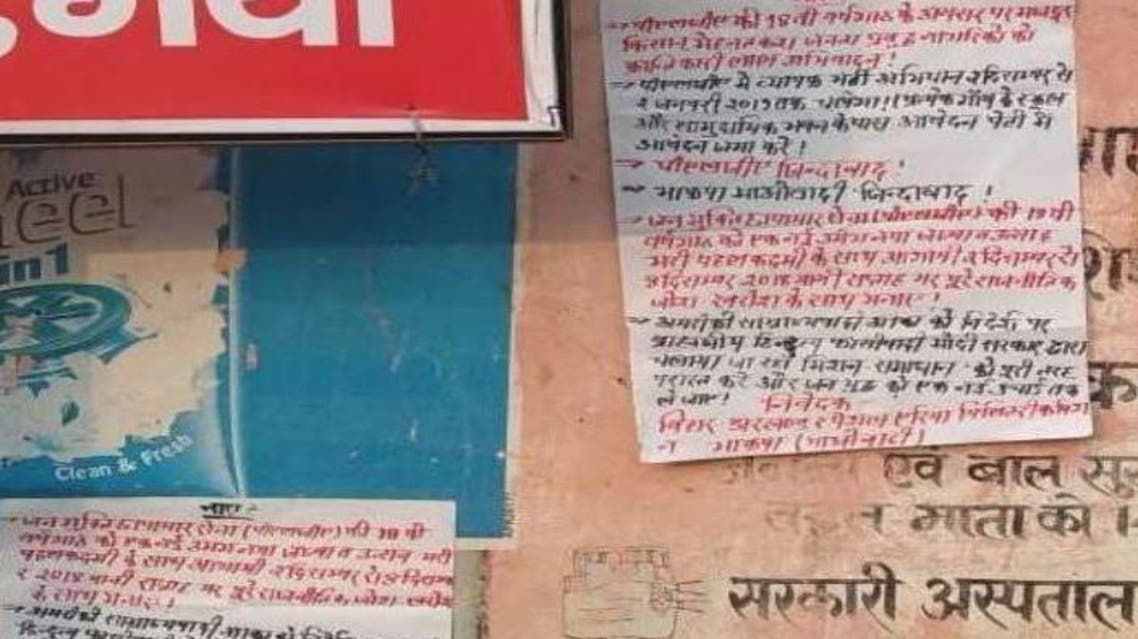 गया
Active
Wheel
in1
Clean & Fresh
→ पीएलजीए की 18 वी वर्षगाठ के अवसर पर मजदूर
किसान मेहनतकश जनता प्रबुद्ध नागरिकों को
क्रान्तिकारी लाल अभिवादन !
→ पीएलजीए में व्यापक भर्ती अभियान 2 दिसम्बर से
2 जनवरी 2019 तक चलेगा! प्रत्येक गाँव के स्कूल
और सामुदायिक भवन के पास आवेदन पेटी में
आवेदन जमा करें !
→ पीएलजीए जिन्दाबाद !
→ भाकपा माओवादी जिन्दाबाद !
→ जन मुक्ति छापामार सेना (पीएलजीए) की 18 वी
वर्षगाठ को एक नई उमंग नया जज्बा व उत्साह
भरी पहलकदमी के साथ आगामी 2 दिसम्बर से
8 दिसम्बर 2018 यानी सप्ताह भर पूरे राजनीतिक
जोश खरोश के साथ मनाए !
→ अमरीकी साम्राज्यवादी के निर्देश पर
ब्राह्मणीय हिन्दुत्व फासीवादी मोदी सरकार द्वारा
चलाया जा रहा मिशन समाधान को पूरी तरह
परास्त करें और जन युद्ध को एक नई उचाई तक
ले जाए! निवेदक
बिहार झारखण्ड स्पेशल एरिया मिलिट्री कमिशन
भाकपा (माओवादी)
एवं बाल सु
माता को
सरकारी अस्पताल
नारा :-
→ जन मुक्ति छापामार सेना (पीएलजीए) की 18 वी
वर्षगाठ को एक नई उमंग नया जज्बा व उत्साह भरी
पहलकदमी के साथ आगामी 2 दिसम्बर से 8 दिसम्बर
2018 यानी सप्ताह भर पूरे राजनीतिक जोश खरोश
के साथ मनाए !
→ अमरीकी साम्राज्यवादी के
हिन्दुत्व